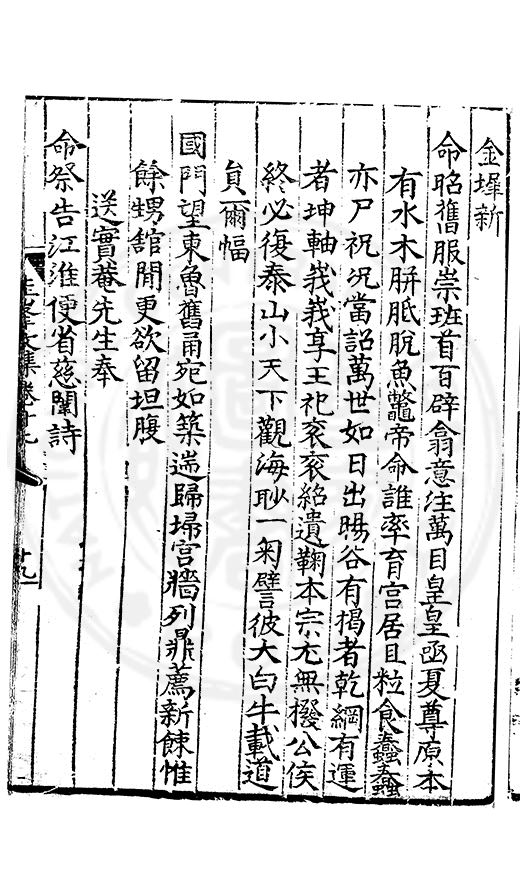 金墀新
命昭舊服崇班首百辟翕意注萬目皇皇函夏尊原本
有水木胼胝脫魚鼈帝命誰率育宫居且粒食蠢蠢
亦尸祝況當詔萬世如日出暘谷有楬者乾綱有運
者坤軸峩峩享王祀衮衮紹遺鞠本宗尤無撥公侯
終必復泰山小天下觀海眇一匊譬彼大白牛載道
負爾幅
國門望東魯舊甬宛如築遄歸埽宫牆列鼎薦新餗惟
餘甥舘閒更欲留坦腹
送實菴先生奉
命祭告江淮便省慈闈詩
文集卷十九
十九